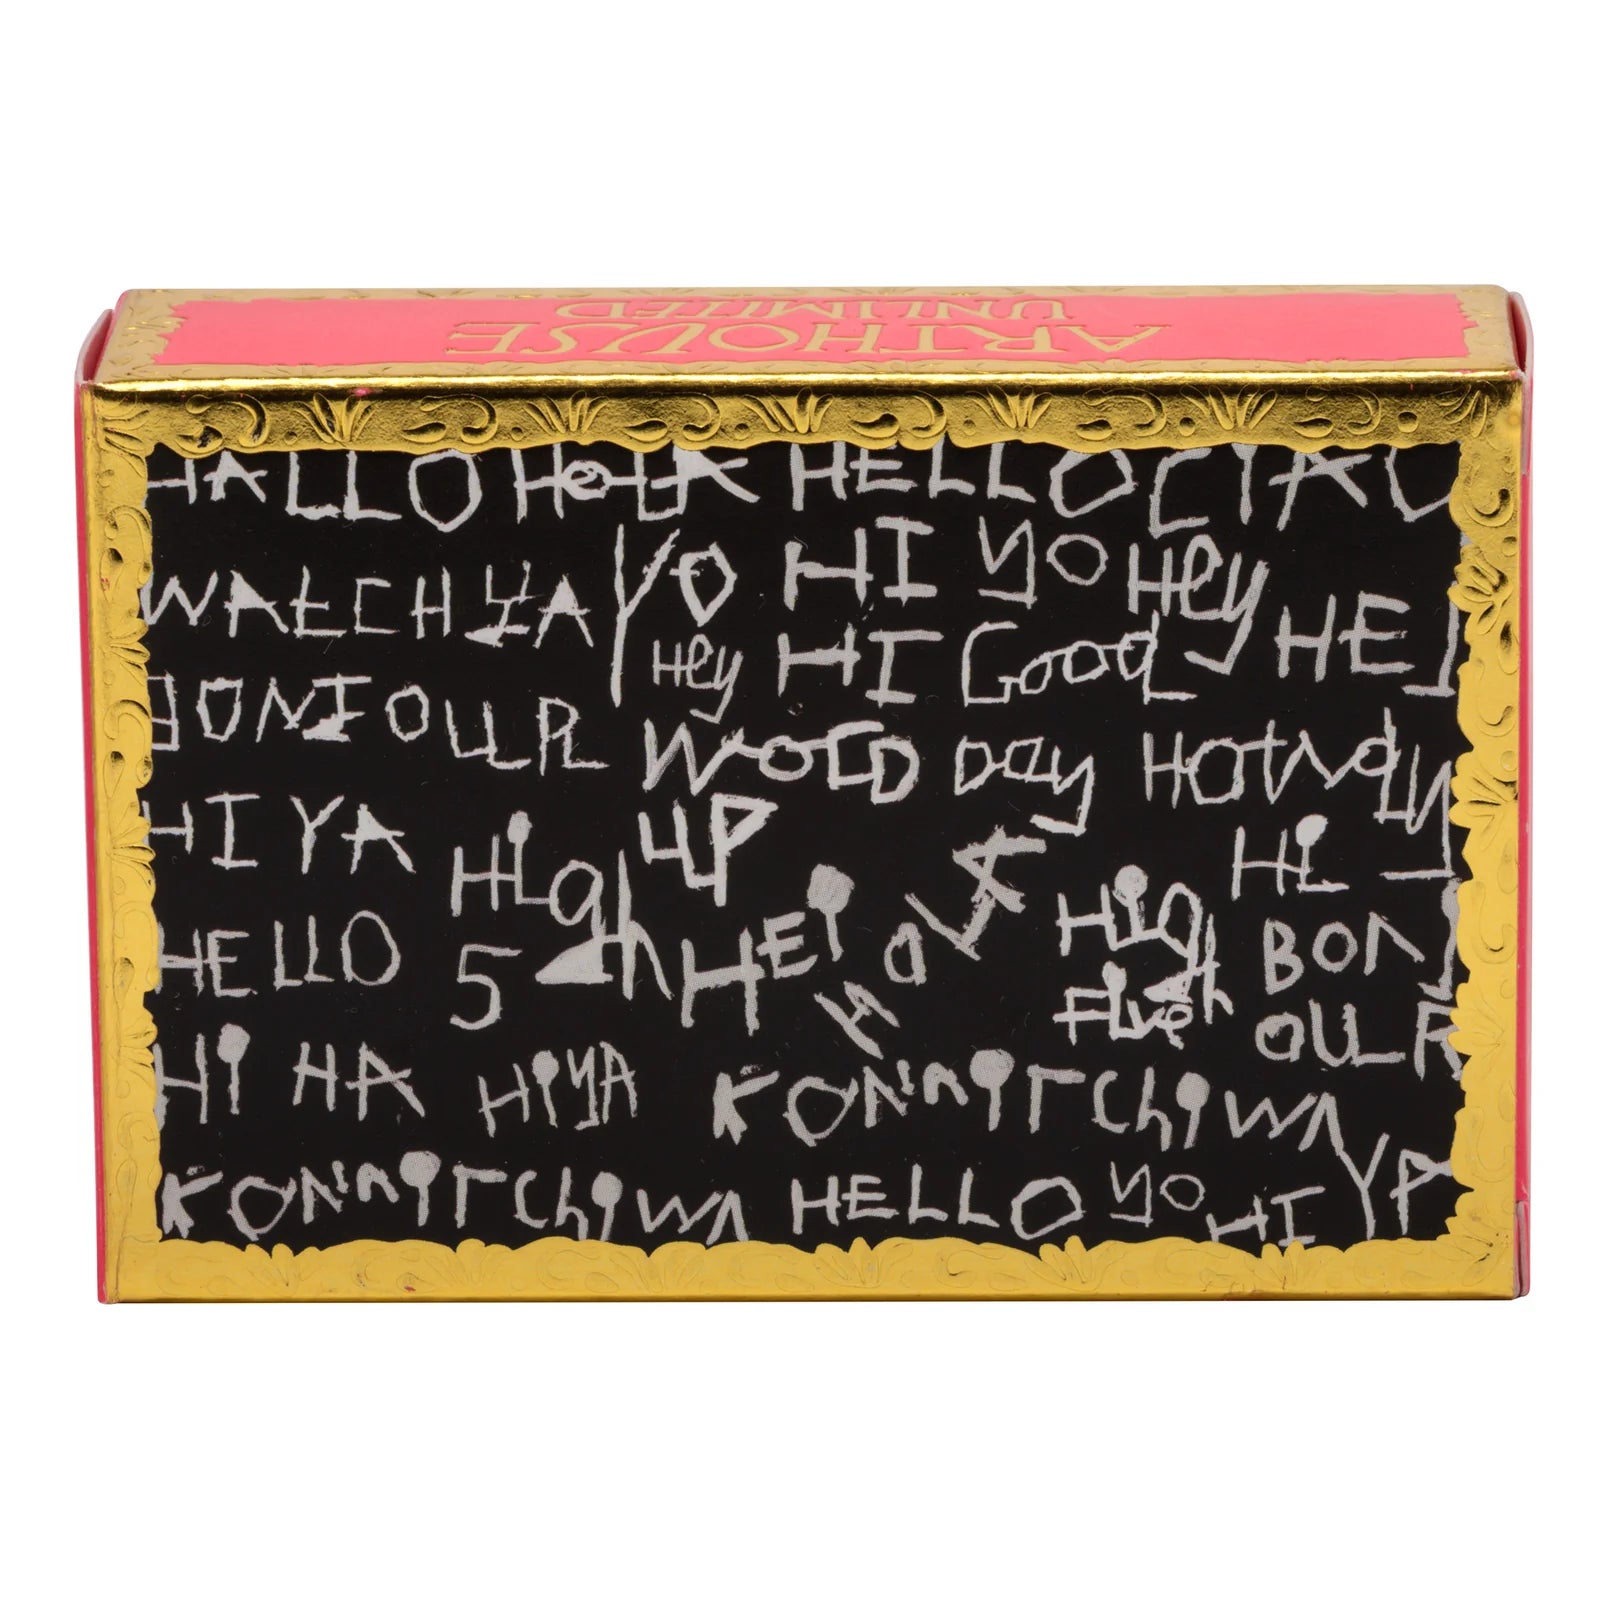 ARTHOUSE
UNLIMITED
HALLO HOLA HELLO CIAO
WATCHYA YO HI YO Hey HEI
Hey HI Good
BONJOUR WORLD Day HOWdy
HIYA HIGH UP HOLA Hi
HELLO 5 Hei HIGH BONJ
Five OUR
Hi HA HiYA KONNiTChiWA
KONNiTChiWA HELLO YO HI YA